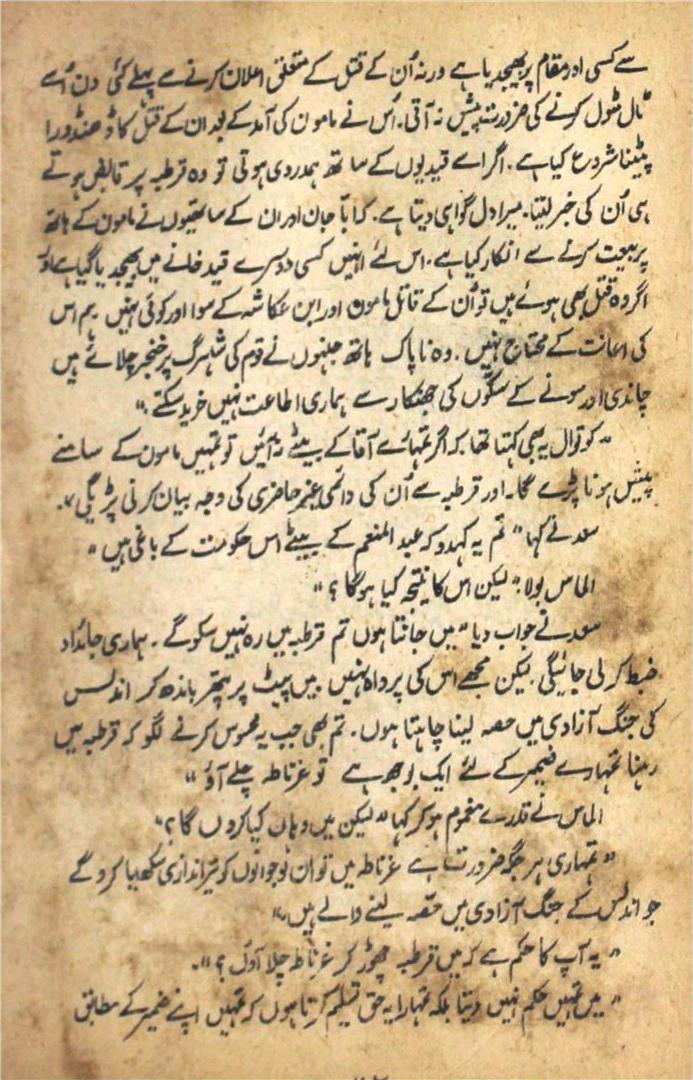 سے کسی اور مقام پر بھیجدیا ہے ورنہ اُن کے قتل کے متعلق اعلان کرنے سے پہلے کئی دن اُسے
ٹال مٹول کرنے کی ضرورت پیش نہ آتی. اُس نے مامون کی آمد کے بعد ان کے قتل کا ڈھنڈورا
پیٹنا شروع کیا ہے. اگر اسے قیدیوں کے ساتھ ہمدردی ہوتی تو وہ قرطبہ پر قابض ہوتے
ہی اُن کی خبر لیتا. میرا دل گواہی دیتا ہے. کہ ابا جان اور ان کے ساتھیوں نے مامون کے ہاتھ
پر بیعت کرنے سے انکار کیا ہے. اس لئے انہیں کسی دوسرے قید خانے میں بھیجدیا گیا ہے اور
اگر وہ قتل بھی ہوئے ہیں تو اُن کے قاتل مامون اور ابن عکاشہ کے سوا اور کوئی نہیں ہم اس
کی اعانت کے محتاج نہیں. وہ ناپاک ہاتھ جنہوں نے قوم کی شہرگ پر خنجر چلائے ہیں
چاندی اور سونے کے سکوں کی جھنکار سے ہماری اطاعت نہیں خرید سکتے."
"کوتوال یہ بھی کہتا تھا کہ اگر تمہارے آقا کے بیٹے نہ آئیں تو تمہیں مامون کے سامنے
پیش ہونا پڑے گا. اور قرطبہ سے اُن کی دائمی غیر حاضری کی وجہ بیان کرنی پڑیگی."
سعد نے کہا "تم یہ کہدو کہ عبدالمنعم کے بیٹے اس حکومت کے باغی ہیں"
الماس بولا. "لیکن اس کا نتیجہ کیا ہوگا؟"
سعد نے جواب دیا "میں جانتا ہوں تم قرطبہ میں رہ نہیں سکو گے. ہماری جائداد
ضبط کر لی جائیگی. لیکن مجھے اس کی پرواہ نہیں. میں پیٹ پر پتھر باندھ کر اندلس
کی جنگ آزادی میں حصہ لینا چاہتا ہوں. تم بھی جب یہ محسوس کرنے لگو کہ قرطبہ میں
رہنا تمہارے ضمیر کے لئے ایک بوجھ ہے تو غرناطہ چلے آؤ"
الماس نے قدرے مغموم ہو کر کہا "لیکن میں وہاں کیا کروں گا؟"
"تمہاری ہر جگہ ضرورت ہے غرناطہ میں تو ان نوجوانوں کو تیراندازی سکھایا کرو گے
جو اندلس کے جنگ آزادی میں حصّہ لینے والے ہیں."
"یہ آپ کا حکم ہے کہ میں قرطبہ چھوڑ کر غرناطہ چلا آوں؟".
"میں تمہیں حکم نہیں دیتا بلکہ تمہارا یہ حق تسلیم کرتا ہوں کہ تمہیں اپنے ضمیر کے مطابق